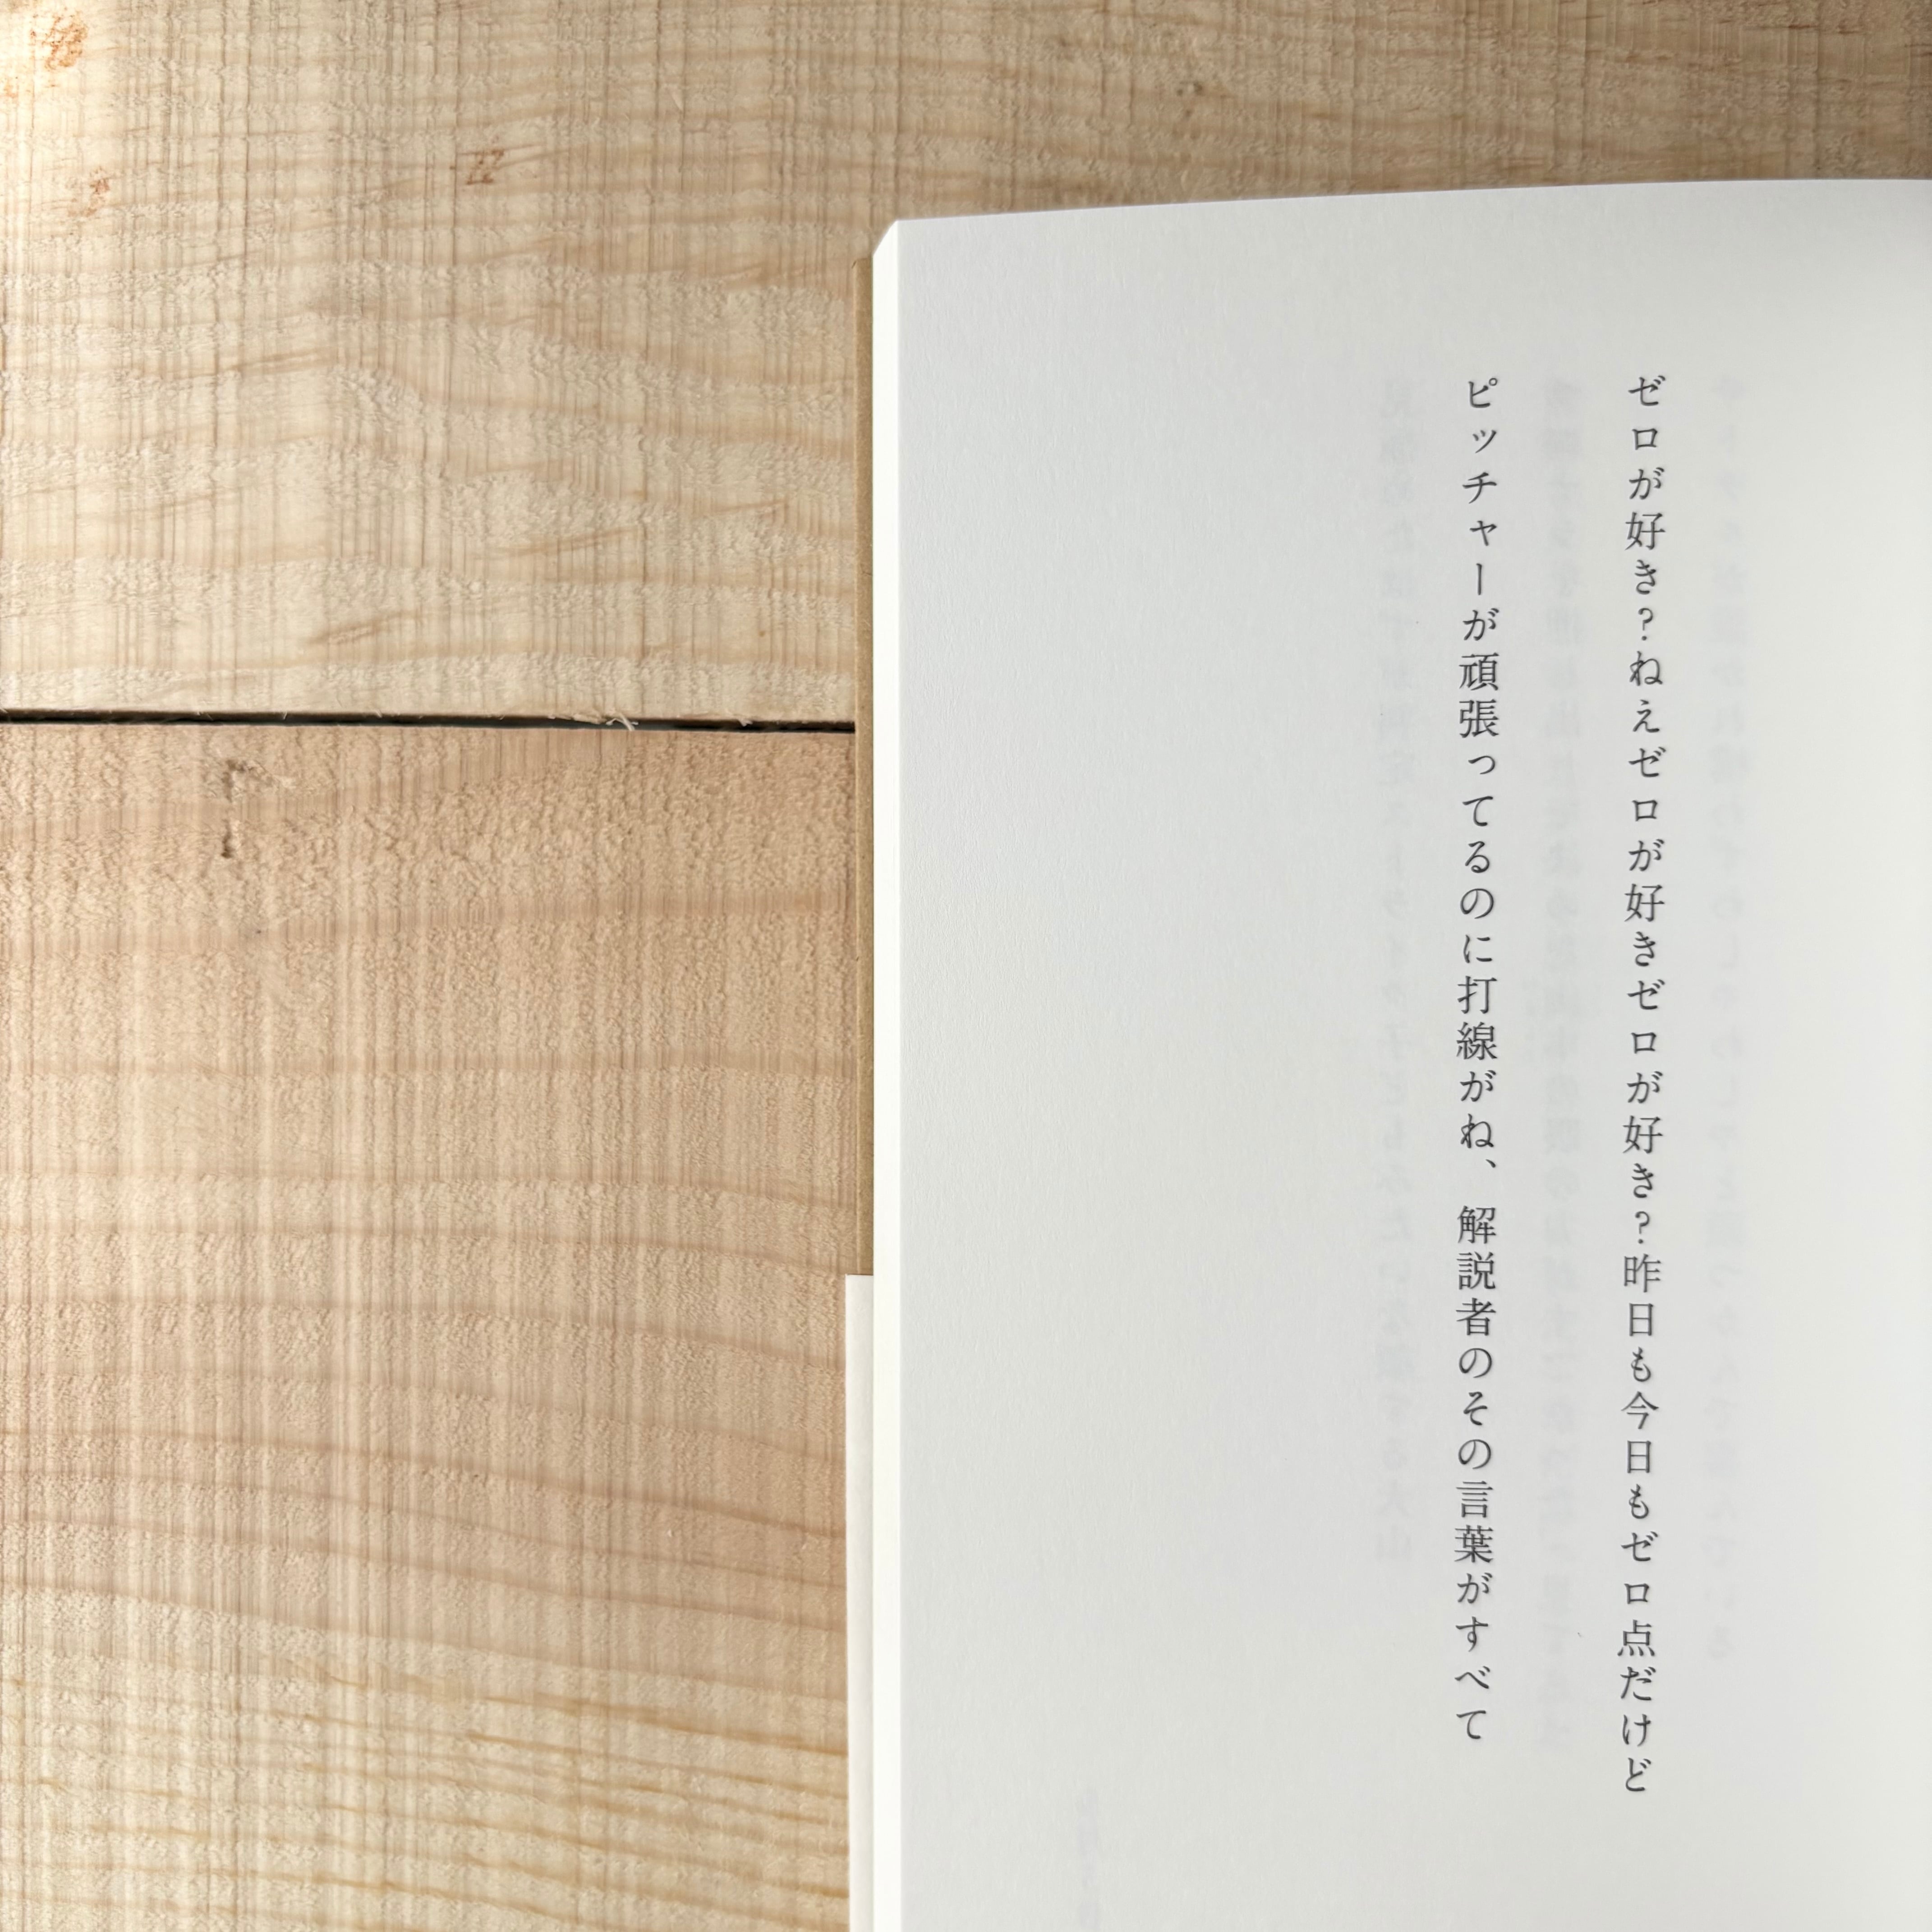 ゼロが好き？ねえゼロが好きゼロが好き？昨日も今日もゼロ点だけど
ピッチャーが頑張ってるのに打線がね、解説者のその言葉がすべて